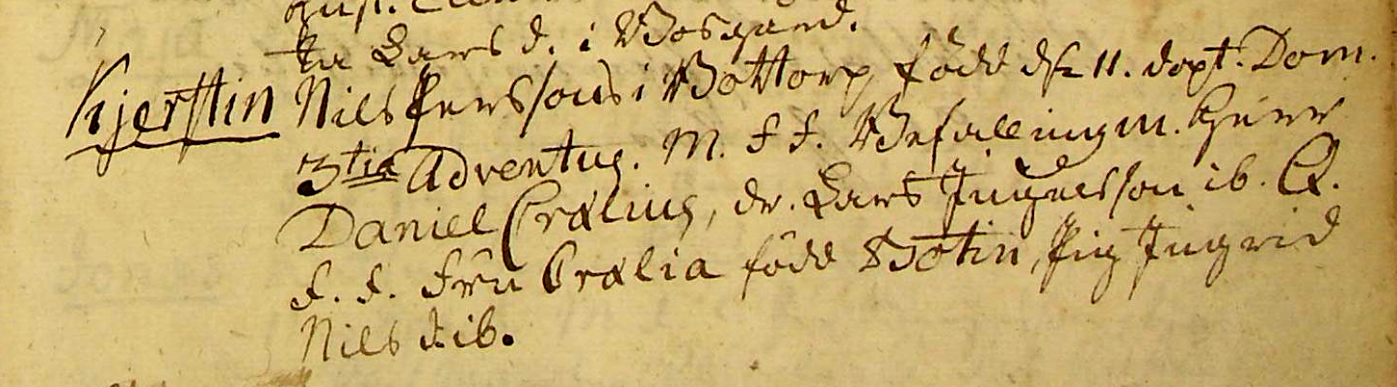 ta Lars d. i Bosgaard.
Kjerstin Nils Perssons i Bottorp, född d. 11. döpt. Dom.
3tia Adventus. M. F. F. Befallningm. Herr
Daniel Crælius, dr. Lars Ingelsson ib. Q.
F. F. Fru Crælia född Botin, Pig Ingrid
Nils d. ib.